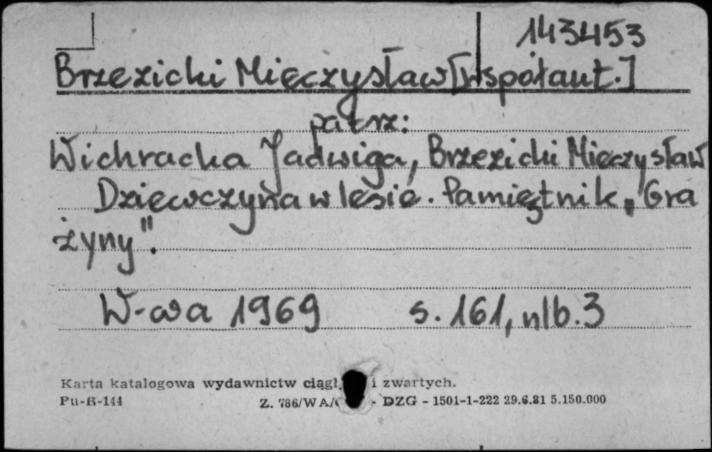 143453
Brzezicki Mieczysław [współaut.]
patrz:
Wichracka Jadwiga, Brzezicki Mieczysław
Dziewczyna w lesie. Pamiętnik "Gra
żyny".
W-wa 1969 s. 161, nlb. 3
Karta katalogowa wydawnictw ciągł. i zwartych.
Pu-B-144 Z. 786/WA/ - DZG - 1501-1-222 29.6.81 5.150.000